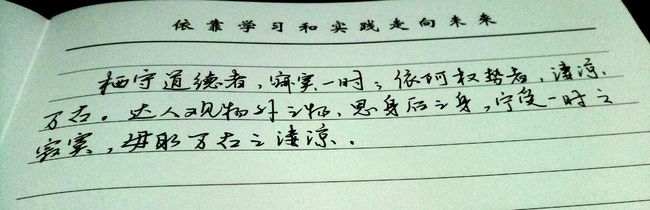 依靠学习和实践走向未来
栖守道德者，寂寞一时；依阿权势者，凄凉
万古。达人观物外之物，思身后之身，宁受一时之
寂寞，毋取万古之凄凉。